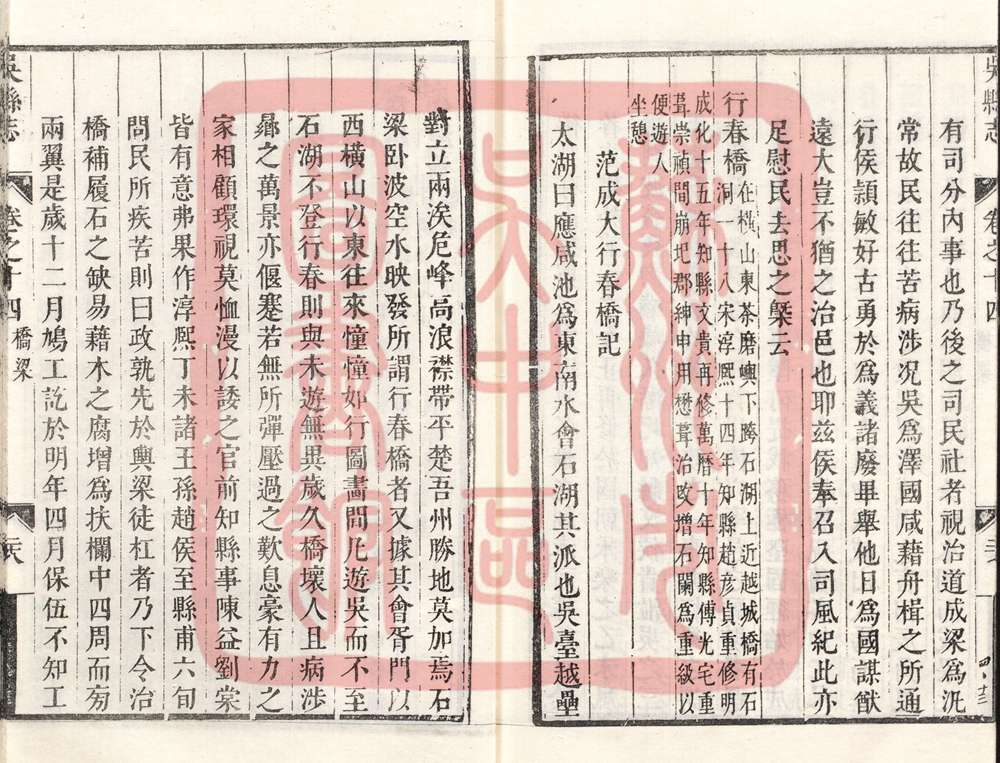 吳縣志
卷之十四
有司分內事也乃後之司民社者視治道成梁爲汎
常故民往往苦病涉况吳爲澤國咸藉舟楫之所通
行侯頴敏好古勇於爲義諸廢畢舉他日爲國謀猷
遠大豈不猶之治邑也耶玆侯奉召入司風紀此亦
足慰民去思之槩云
行春橋在橫山東茶磨嶼下跨石湖上近越城橋有石
洞一十八宋淳熙十四年知縣趙彥貞重修明
成化十五年知縣文貴再修萬曆十年知縣傅光宅重
葺崇禎間崩圯郡紳申用懋葺治改增石闌爲重級以
便遊人
坐憩
范成大行春橋記
太湖曰應咸池爲東南水會石湖其派也吳臺越壘
對立兩涘危峰高浪襟帶平楚吾州勝地莫加焉石
梁卧波空水映發所謂行春橋者又據其會胥門以
西橫山以東往來憧憧如行圖畫間凡遊吳而不至
石湖不登行春則與未遊無異歲久橋壞人且病涉
曏之萬景亦偃蹇若無所彈壓過之歎息豪有力之
家相顧環視莫恤漫以諉之官前知縣事陳益劉棠
皆有意弗果作淳熙丁未諸王孫趙侯至縣甫六旬
問民所疾苦則曰政孰先於輿梁徒杠者乃下令治
橋補履石之缺易藉木之腐增爲扶欄中四周而旁
兩翼是歲十二月鳩工訖於明年四月保伍不知工
吳縣志
卷之十四
橋梁
蘇州市
吳中區
圖書館